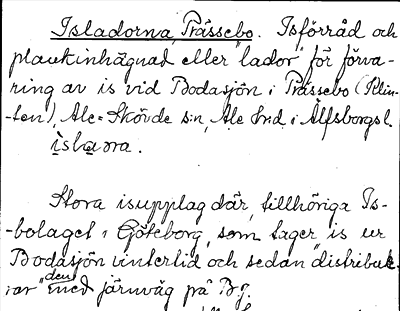 Isladorna, Prässebo. Isförråd och
plankinhägnad eller "lador" för förva-
ring av is vid Bodasjön i Prässebo (Klin-
ten), Ale-Skövde sn, Ale hd, i Älfsborgs l.
Stora isupplag där, tillhöriga Is-
-bolaget i Göteborg, som tager is ur
Bodasjön vintertid och sedan "distribue-
rar" den med järnväg på B.J.